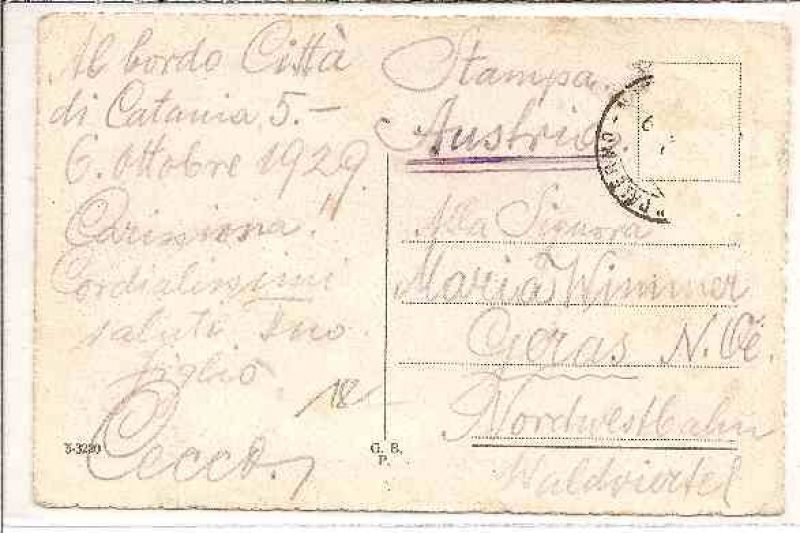 Al bordo Città
di Catania 5.–
6. ottobre 1929
Carissima!!
Cordialissimi
saluti. Suo
figlio
Cecco.
12
3-3220
G. B.
P.
Stampa.
Austria.
Alla Signora
Maria Wimmer
Geras N. Oe.
Nordwestbahn
Waldviertel